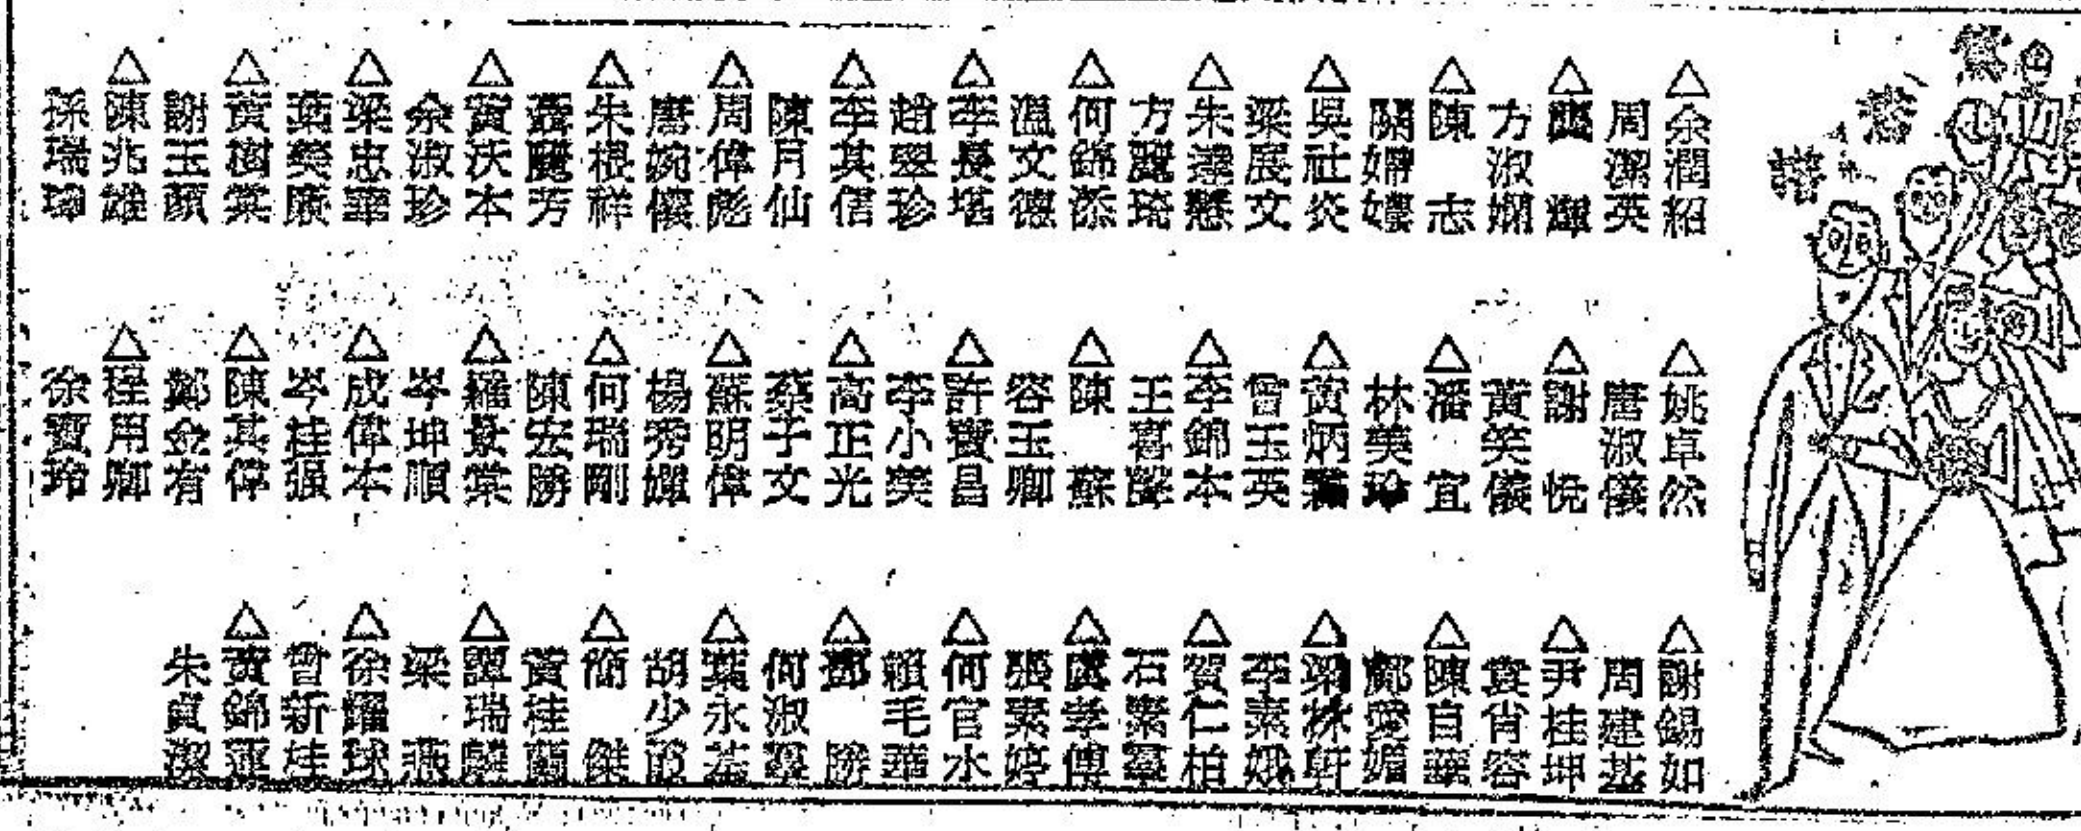 △余潤紹
周潔英
△輝
方淑嫻
△陳志
關嫦
△吳社炎
梁展文
△朱達
方麗琦
△何錦添
溫文德
△李長堪
趙翠珍
△李其信
陳月仙
△周偉彪
唐婉儀
△朱根祥
聶麗芳
△黃沃本
余淑珍
△梁忠華
葉榮廣
△黃樹棠
謝玉顏
△陳兆雄
孫瑞瓊
△姚卓然
唐淑儀
△謝悦
黃笑儀
△潘宜
林美珍
△黃炳
曾玉英
△李錦本
王喜
△陳蘇
容玉卿
△許寶昌
李小美
△高正光
蔡子文
△蘇明偉
楊秀嬋
△何瑞剛
陳宏勝
△羅景棠
岑坤順
△成偉本
岑桂强
△陳其偉
鄭金有
△程用卿
徐寶玲
△謝錫如
周建基
△尹桂坤
袁肖容
△陳自華
鄺愛媚
△梁林軒
李素娥
△賀仁柏
石素羣
△盧孝傅
張素婷
△何官水
賴毛華
△鄧勝
何淑翠
△葉永基
胡少
△簡傑
黃桂蘭
△譚瑞麟
梁燕
△徐耀球
曾新桂
△黃錦運
朱貞潔